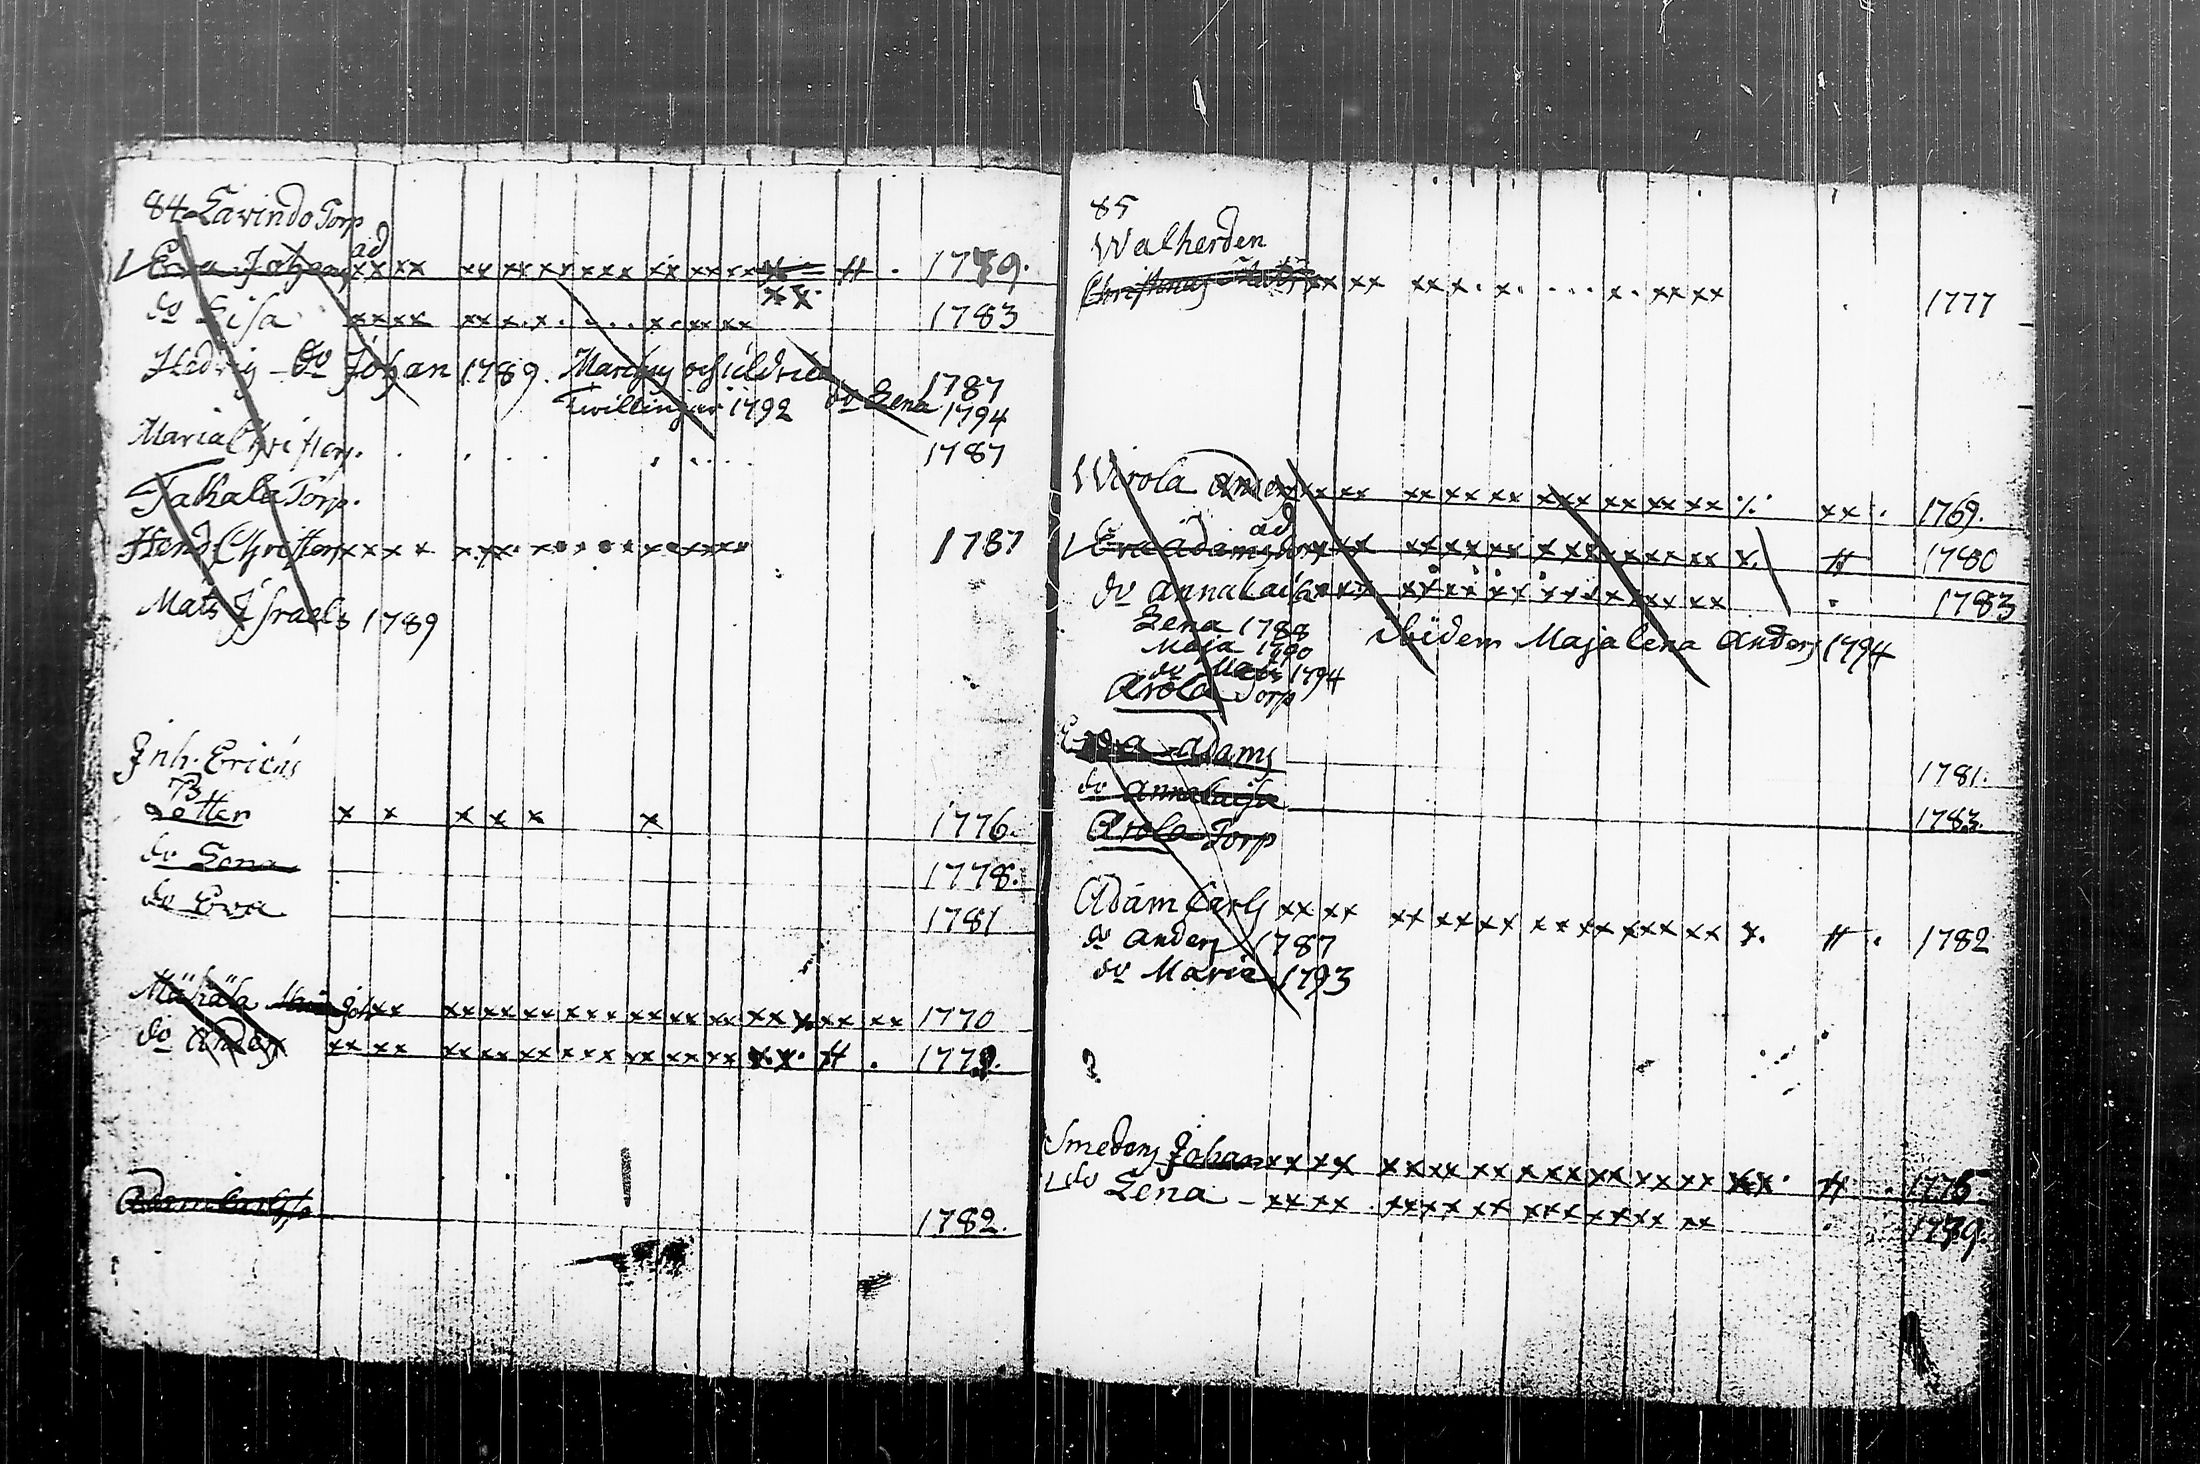 84 Lavindo Torp
ad
Eva Johans xx xx xx xx xx xxx xx xx xx H . 1779.
xx.
do Lisa xx xx xx x. x. . . . x. xx xx 1783
Hedvig do Johan 1789. 1787
Twillingar 1792 do Lena 1794
Maria Christers. . . . . . . . . 1787
Tahala Torp.
Hend. Christers xxx x x.xx. x 1787
Mats Israels 1789
Inh. Erichs
dotter x x x x x x 1776.
do Lena 1778.
do Eva 1781
Mähälä Joh xx xx xx xx xxx xx xx xx xx x xx xx 1770
do Anders xx xx xx xx xx xxx xx xx xx xx. H . 1779.
Adam Carls 1782.
85
Walherden
Christerus xx xx xx x. x. . . . x. xx xx . 1777
Wirola Anders xx xx xx xx xx xxx xx xx xx ./. xx . 1769.
ad
Eva Adams xx xx xx xx xx xxx xx xx xx x. H 1780
do Anna Caisa xx xx xx xx xx xxx xx xx xx . 1783
Lena 1788 ibidem Maja Lena Anders 1794
Maja 1790
do Mats 1794
Arola Torp
Eva Adams 1781.
do Anna Caisa 1783.
Arola Torp
Adam Carls xx xx xx xx xx xxx xx xx xx x. H . 1782
do Anders 1787
do Maria 1793
Smedens Johan xx xx xx xx xx xxx xx xx xx xx. H . 1775.
do Lena - xx xx xx xx xx xxx xx xx xx . 1779.